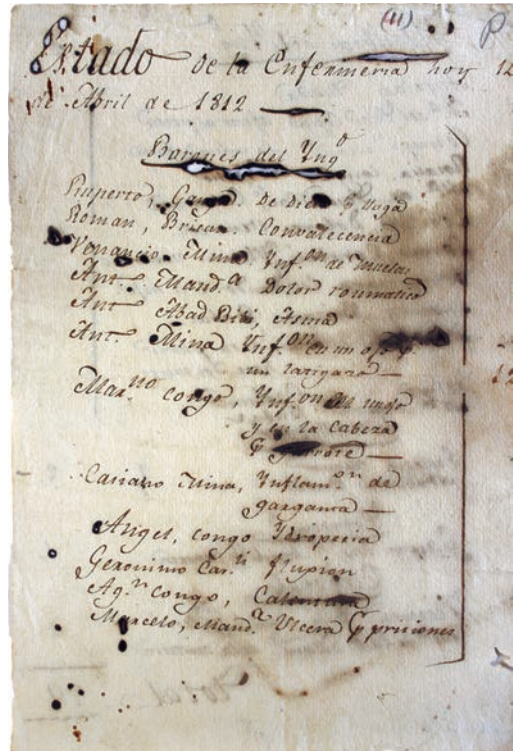 (11) P
Estado de la Enfermeria hoy 12
de Abril de 1812
Barques del Yngº
Ruperto, Gangá. De Dieta p Llaga
Roman, Bricam. Convalecencia
Venancio. Mina Ynf.on de muelas
Ant.º Mand.a Dolor reumatico
Ant.º Abad Bibi, Asma
Ant.º Mina Ynf.on en un ojo p
un latigazo —
Mar.no congo, Ynf.on en un ojo
y en la cabeza
p garrote —
Casiano Mina, Ynflam.on de
garganta —
Angel, congo Ydropecia
Geronimo Car.li fluxion
Ag.n congo, Calentura
Marcelo, Mand.a Ulcera p priciones
12